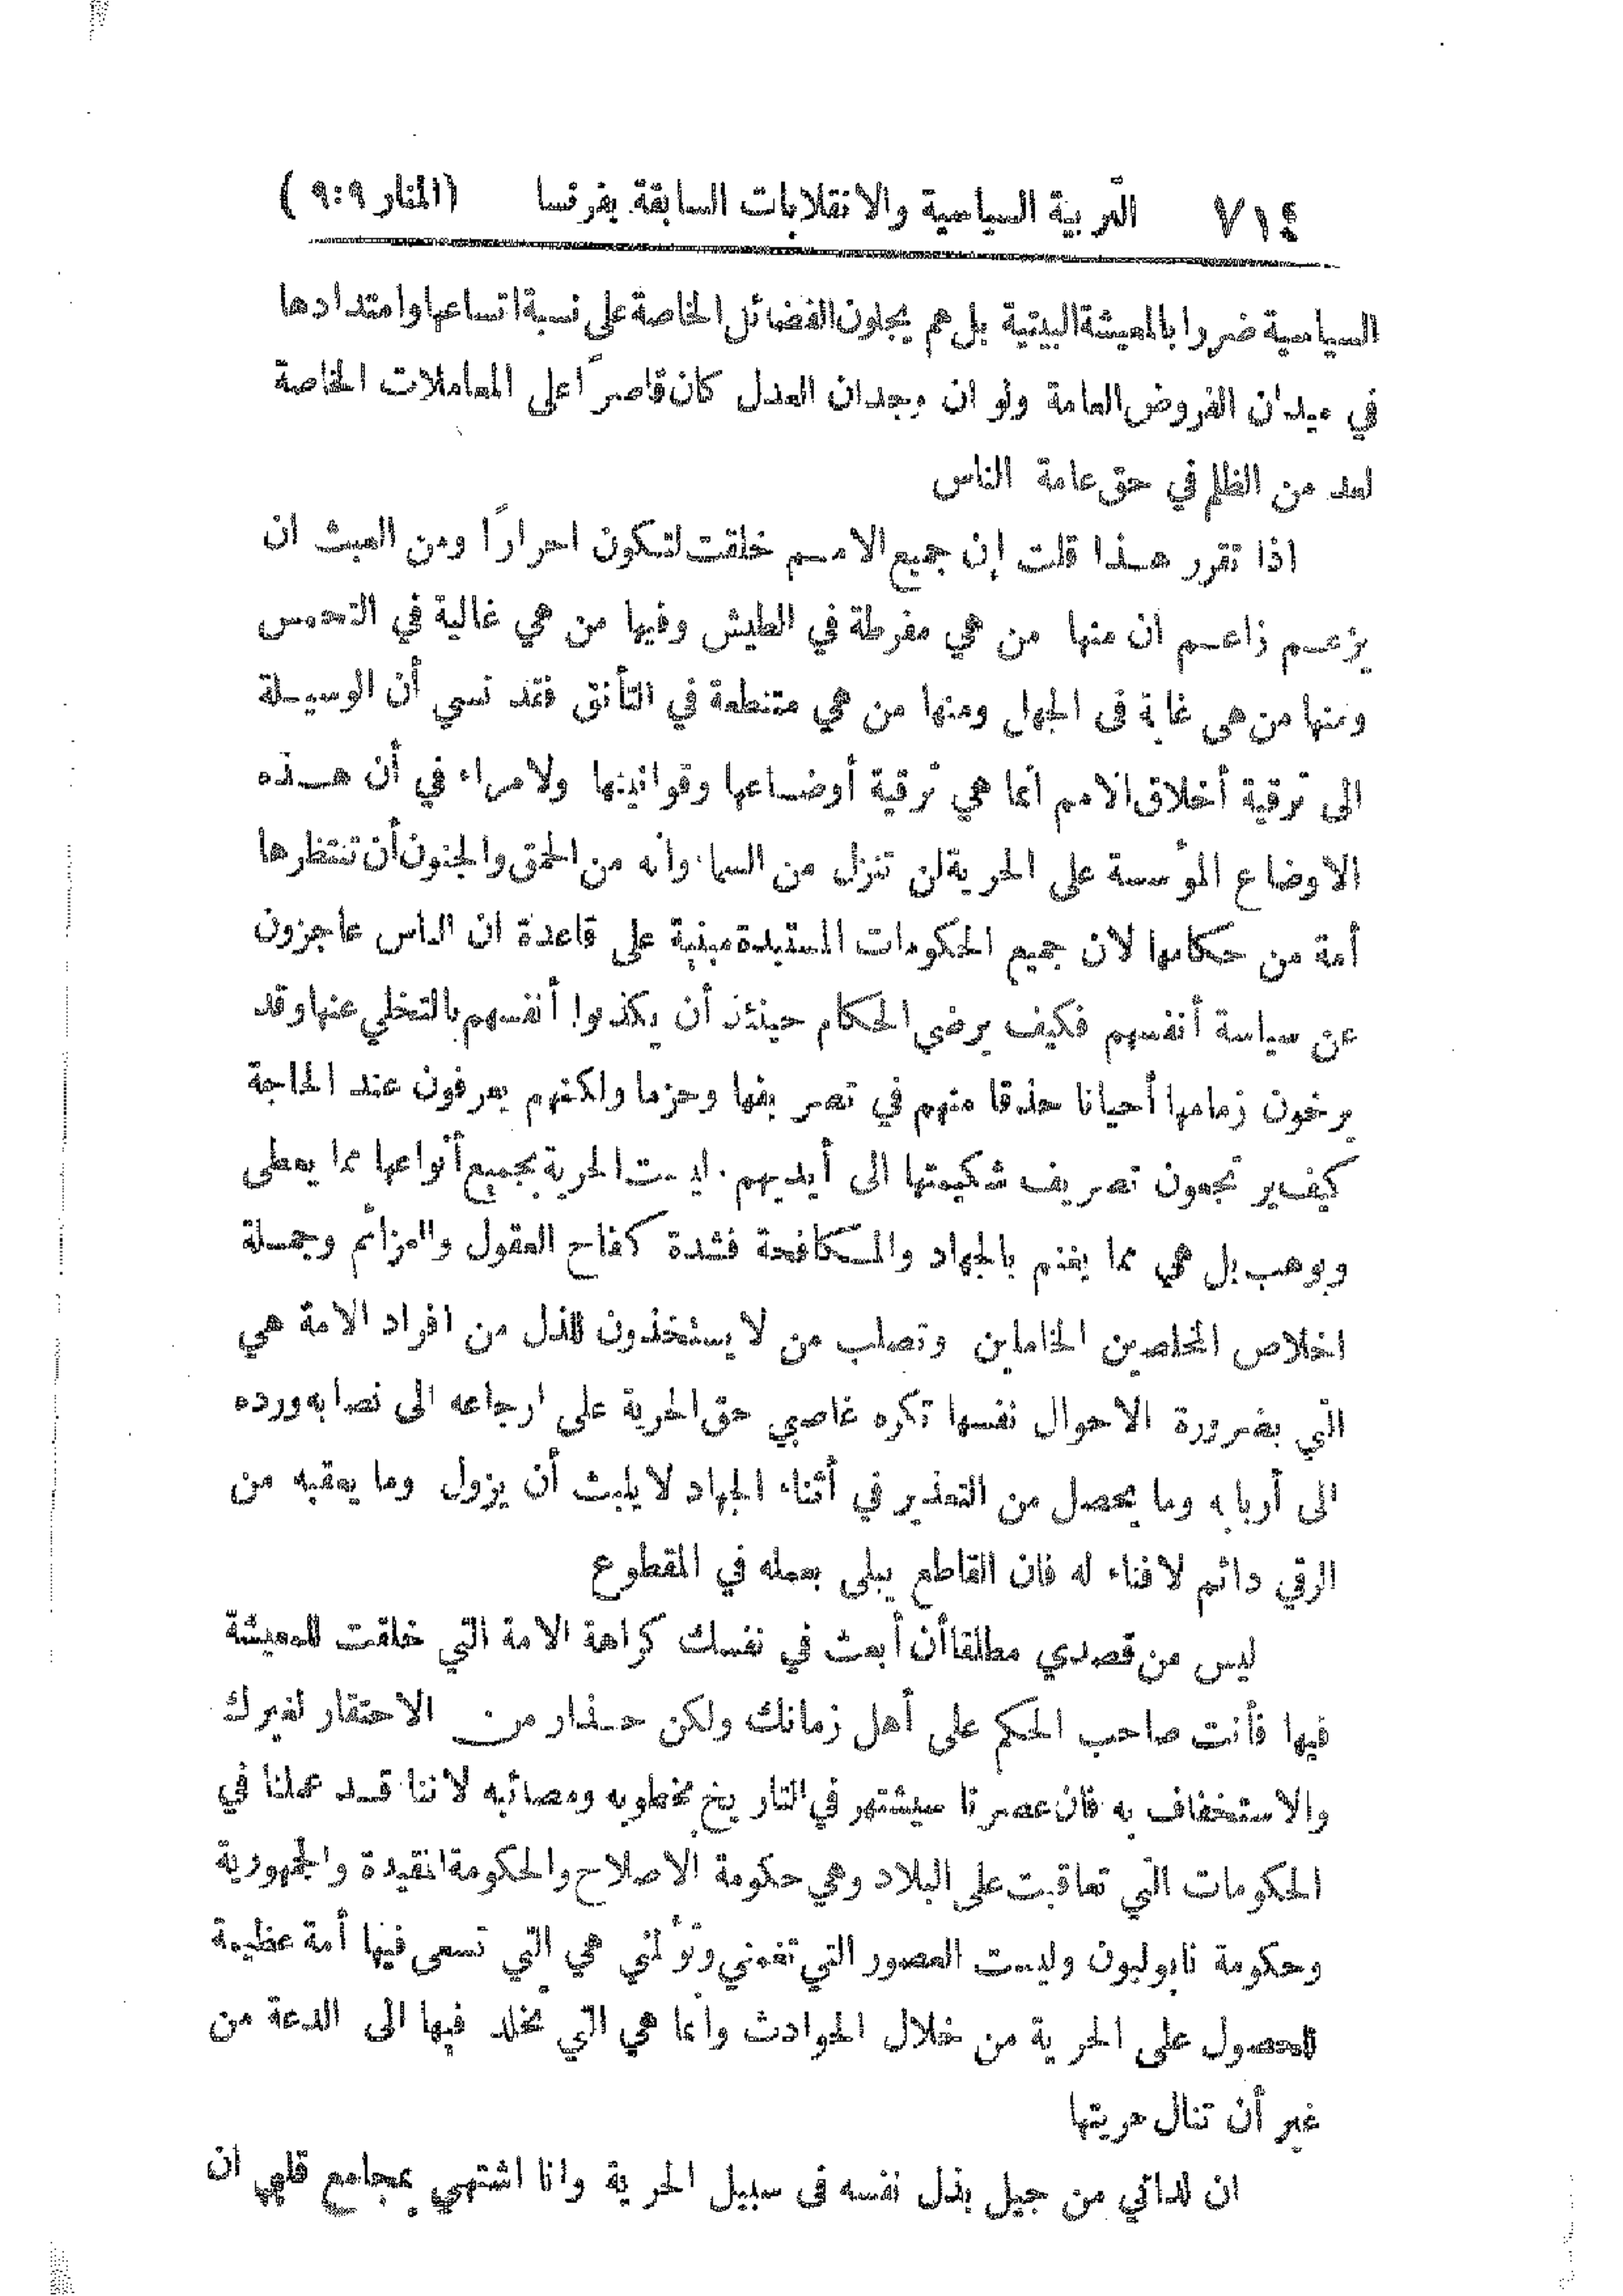 ٧١٤ التربية السياسية والانقلابات السابقة بفرنسا (المنار ٩:٩)
السياسية ضررا بالمعيشة البيتية بل هم يجلون الفضائل الخاصة على نسبة اتساعها وامتدادها
في ميدان الفروض العامة ولو ان وجدان العدل كان قاصرًا على المعاملات الخاصة
لعد من الظلم في حق عامة الناس
اذا تقرر هذا قلت إن جميع الامم خلقت لتكون احرارًا ومن العبث ان
يزعم زاعم ان منها من هي مفرطة في الطيش وفيها من هي غالية في التحمس
ومنها من هى غاية فى الجهل ومنها من هي متنطعة في التأنق فقد نسي أن الوسيلة
الى ترقية أخلاق الامم انما هي ترقية أوضاعها وقوانينها ولا مراء في أن هذه
الاوضاع المؤسسة على الحرية لن تنزل من السماء وانه من الحمق والجنون أن تنتظرها
أمة من حكامها لان جميع الحكومات المستبدة مبنية على قاعدة ان الناس عاجزون
عن سياسة أنفسهم فكيف يرضي الحكام حينئذ أن يكذبوا أنفسهم بالتخلي عنها وقد
يرخون زمامها أحيانا حذقا منهم في تصريفها وحزما ولكنهم يعرفون عند الحاجة
كيف يرجعون تصريف شكيمتها الى أيديهم . ليست الحرية بجميع أنواعها مما يعطى
ويوهب بل هي مما يغنم بالجهاد والمكافحة فشدة كفاح العقول والعزائم وجملة
اخلاص المخلصين الخاملين وتصلب من لا يستخذون للذل من افراد الامة هي
التي بضرورة الاحوال نفسها تكره غاصبي حق الحرية على ارجاعه الى نصابه ورده
الى أربابه وما يحصل من التعذير في أثناء الجهاد لا يلبث أن يزول وما يعقبه من
الرقي دائم لا فناء له فان القاطع يبلى بعمله في المقطوع
ليس من قصدي مطلقا أن أبعث في نفسك كراهة الامة التي خلقت للمعيشة
فيها فأنت صاحب الحكم على أهل زمانك ولكن حذار من الاحتقار لغيرك
والاستخفاف به فان عصرنا سيشتهر في التاريخ بخطوبه ومصائبه لاننا قد عملنا في
الحكومات التي تعاقبت على البلاد وهي حكومة الاصلاح والحكومة المقيدة والجمهورية
وحكومة نابوليون وليست العصور التي تغمني وتؤلمني هي التي تسعى فيها أمة عظيمة
للحصول على الحرية من خلال الحوادث وانما هي التي تخلد فيها الى الدعة من
غير أن تنال حريتها
ان لداتي من جيل بذل نفسه فى سبيل الحرية وانا اشتهي بمجامع قلبي ان